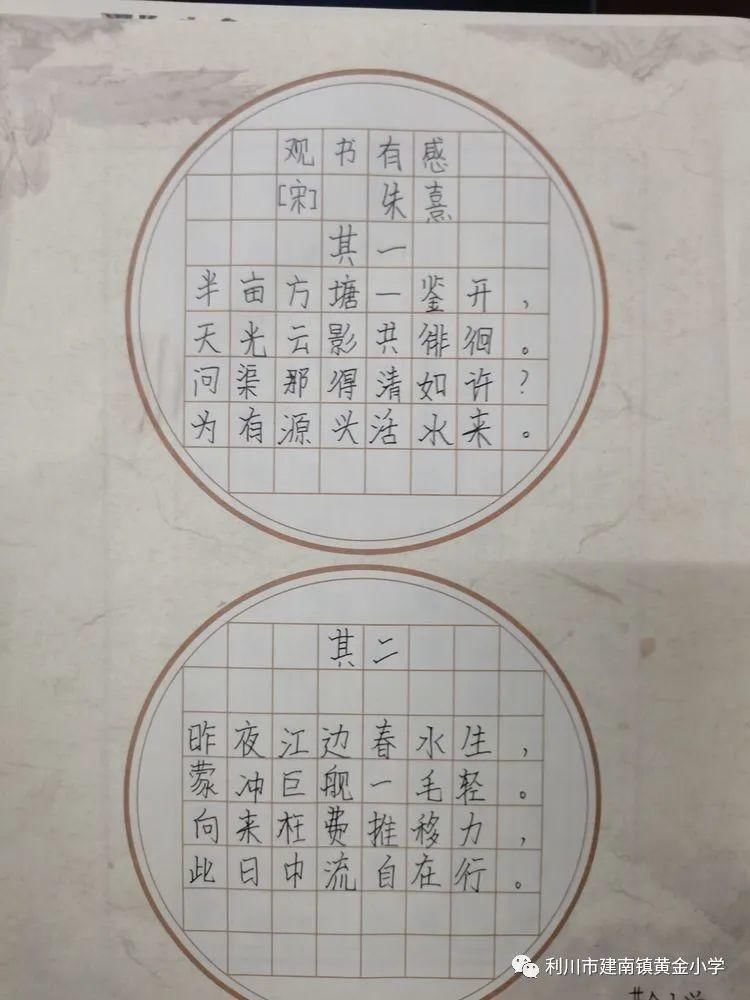 观书有感
[宋] 朱熹
其一
半亩方塘一鉴开，
天光云影共徘徊。
问渠那得清如许？
为有源兴活水来。
其二
昨夜江边春水生，
蒙冲巨舰一毛轻。
向来枉费推移力，
此日中流自在行。
利川市建南镇黄金小学